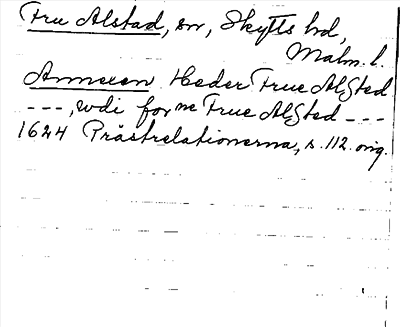 Fru Alstad, sn, Skytts hd,
Malm. l.
Annexen Heder Frue Alsted
---, udi for ne Frue Alsted ---
1624 Prästrelationerna, s. 112. orig.